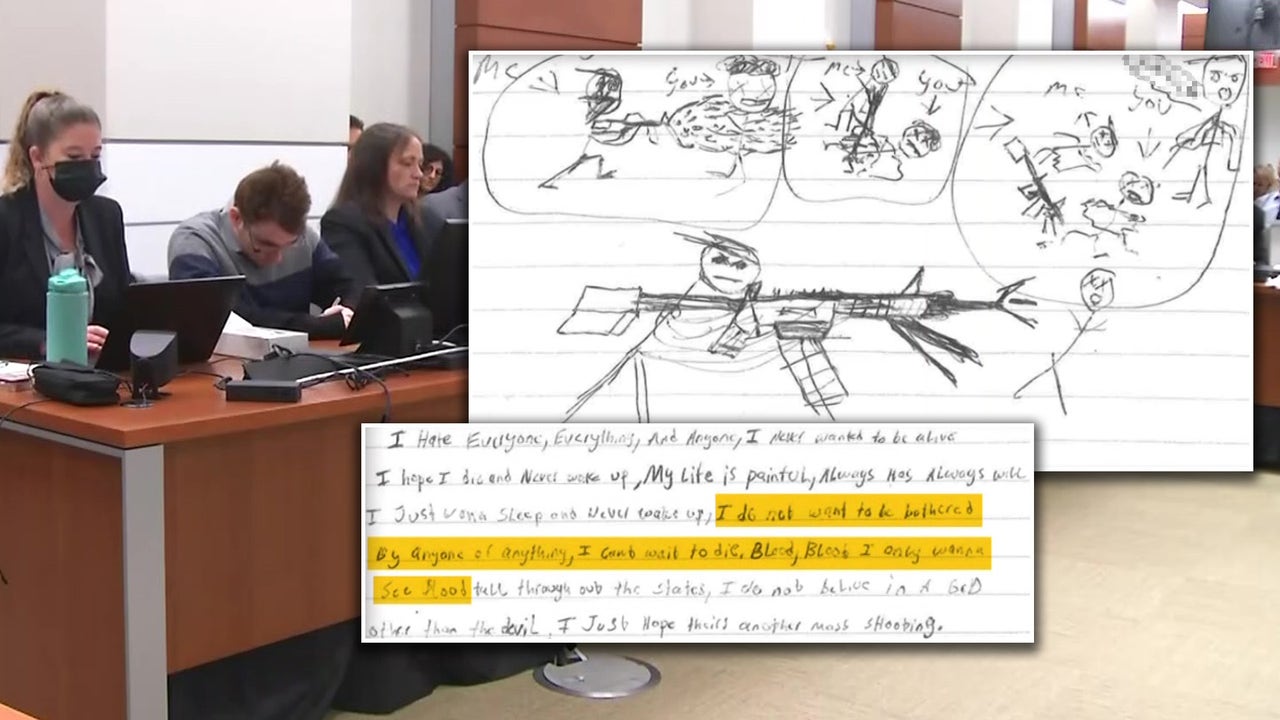 Me
You
Me
You
Me
You
I Hate Everyone, Everything, And Anyone, I Never wanted to be alive
I hope I die and Never wake up, My Life is painful, Always Has Always will
I Just wana sleep and Never wake up, I do not want to be bothered
By anyone or anything, I cant wait to die. Blood, Blood I only wanna
See blood through out the states, I do not belive in A GOD
other than the devil, I Just Hope theirs another mass shooting.